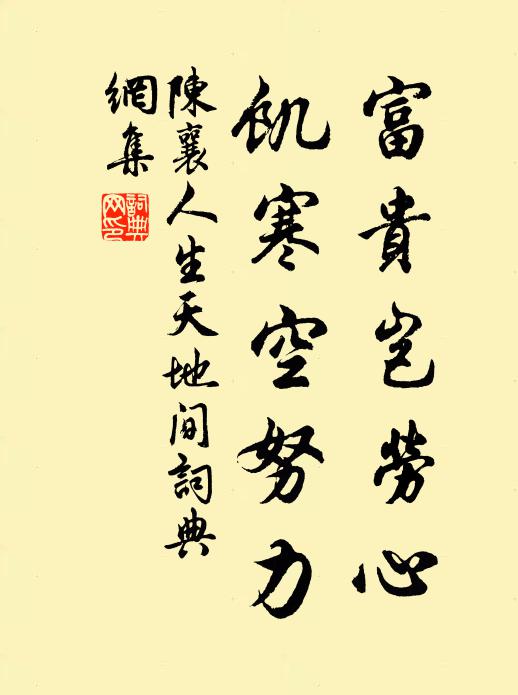 富貴豈勞心
飢寒空努力
陳襄人生天地間詞典
網集
詞典
网印